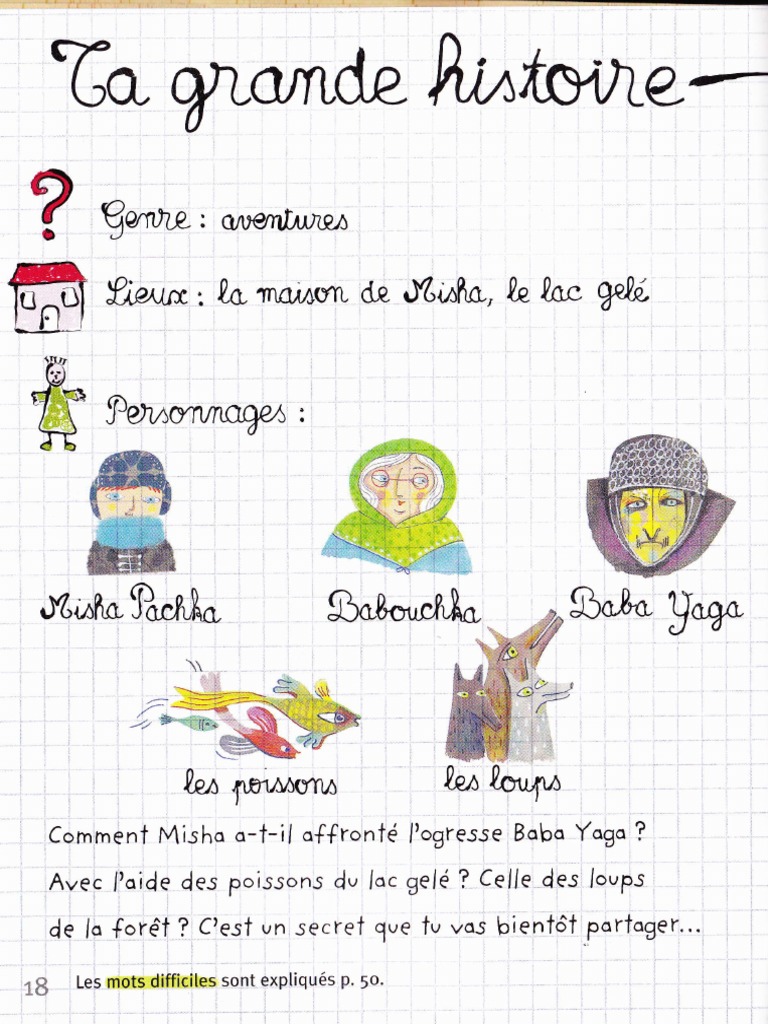 Ta grande histoire
Genre : aventures
Lieux : la maison de Misha, le lac gelé
Personnages :
Misha Pachka
Babouchka
Baba Yaga
les poissons
les loups
Comment Misha a-t-il affronté l'ogresse Baba Yaga ?
Avec l'aide des poissons du lac gelé ? Celle des loups
de la forêt ? C'est un secret que tu vas bientôt partager...
18 Les mots difficiles sont expliqués p. 50.